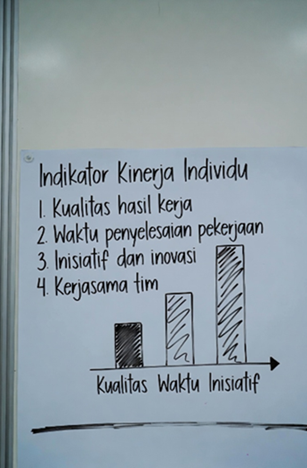 Indikator Kinerja Individu
1. Kualitas hasil kerja
2. Waktu penyelesaian pekerjaan
3. Inisiatif dan inovasi
4. Kerjasama tim
Kualitas Waktu Inisiatif